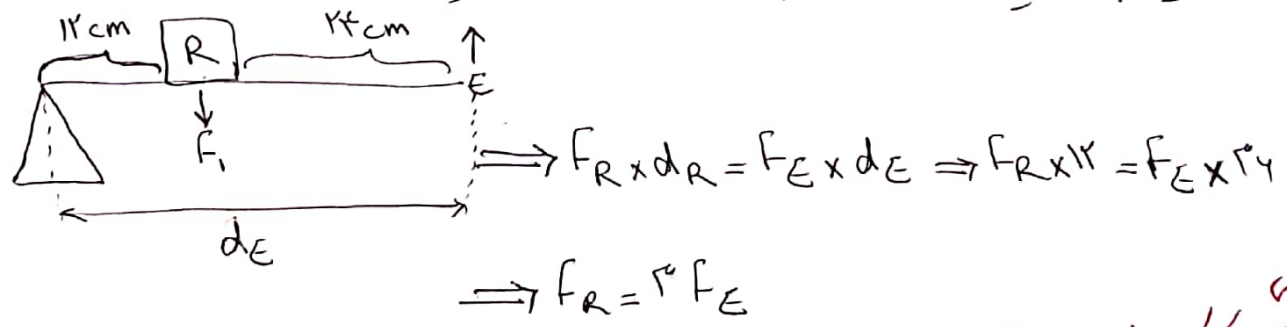 ۱۲ cm R ۲۴ cm
E
F₁
⇒ F_R × d_R = F_E × d_E ⇒ F_R × ۱۲ = F_E × ۳۶
d_E
⇒ F_R = ۳ F_E